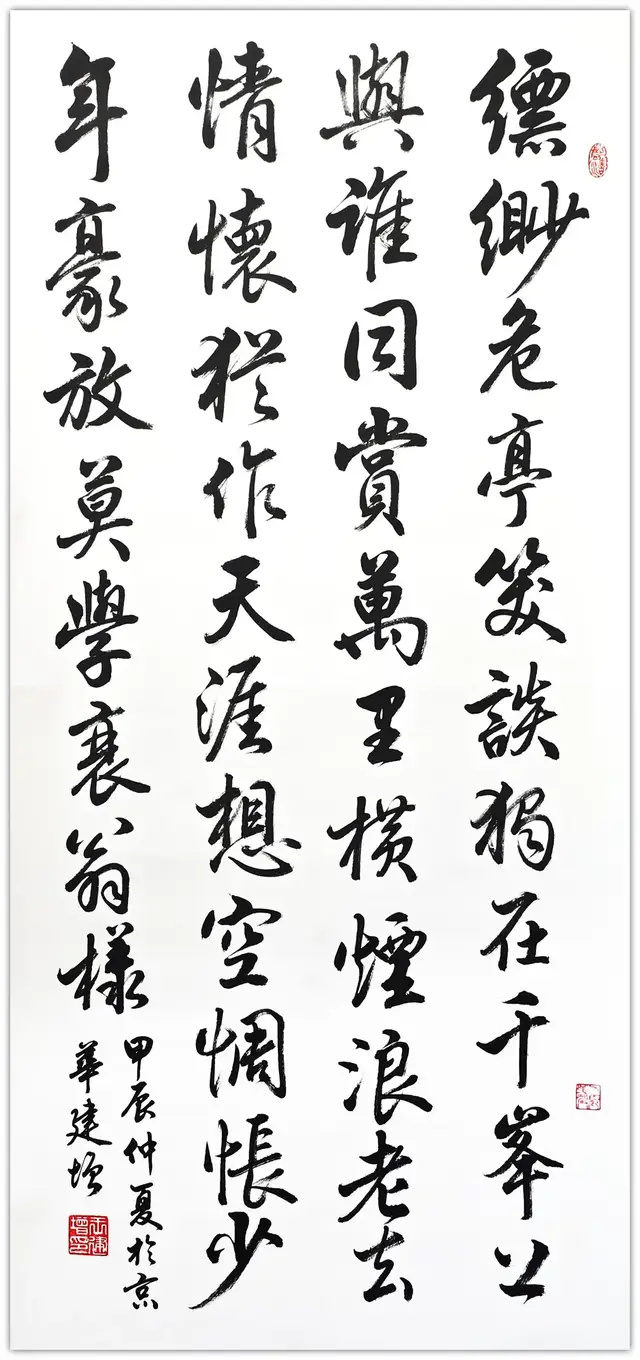 縹緲危亭笑談獨在千峯上
與誰同賞萬里橫煙浪老去
情懷猶作天涯想空惆悵少
年豪放莫學衰翁樣
甲辰仲夏於京
華建增